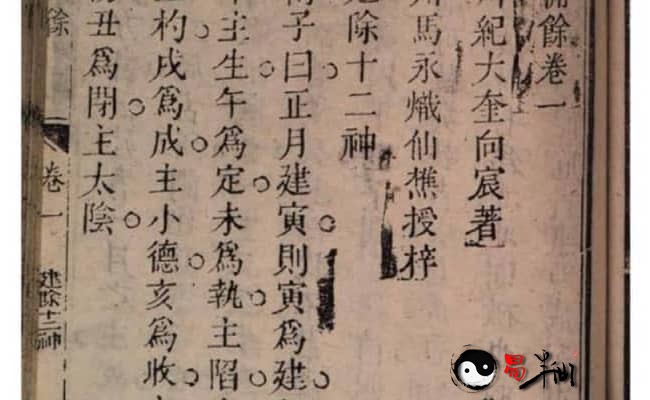 餘卷一
紀大奎向宸著
馬永熾仙樵授梓
除十二神
子曰正月建寅則寅爲建
主生午爲定未爲執主陷
杓戌爲成主小德亥爲收
丑爲閉主太陰
餘
卷一
建除十二神
易半仙